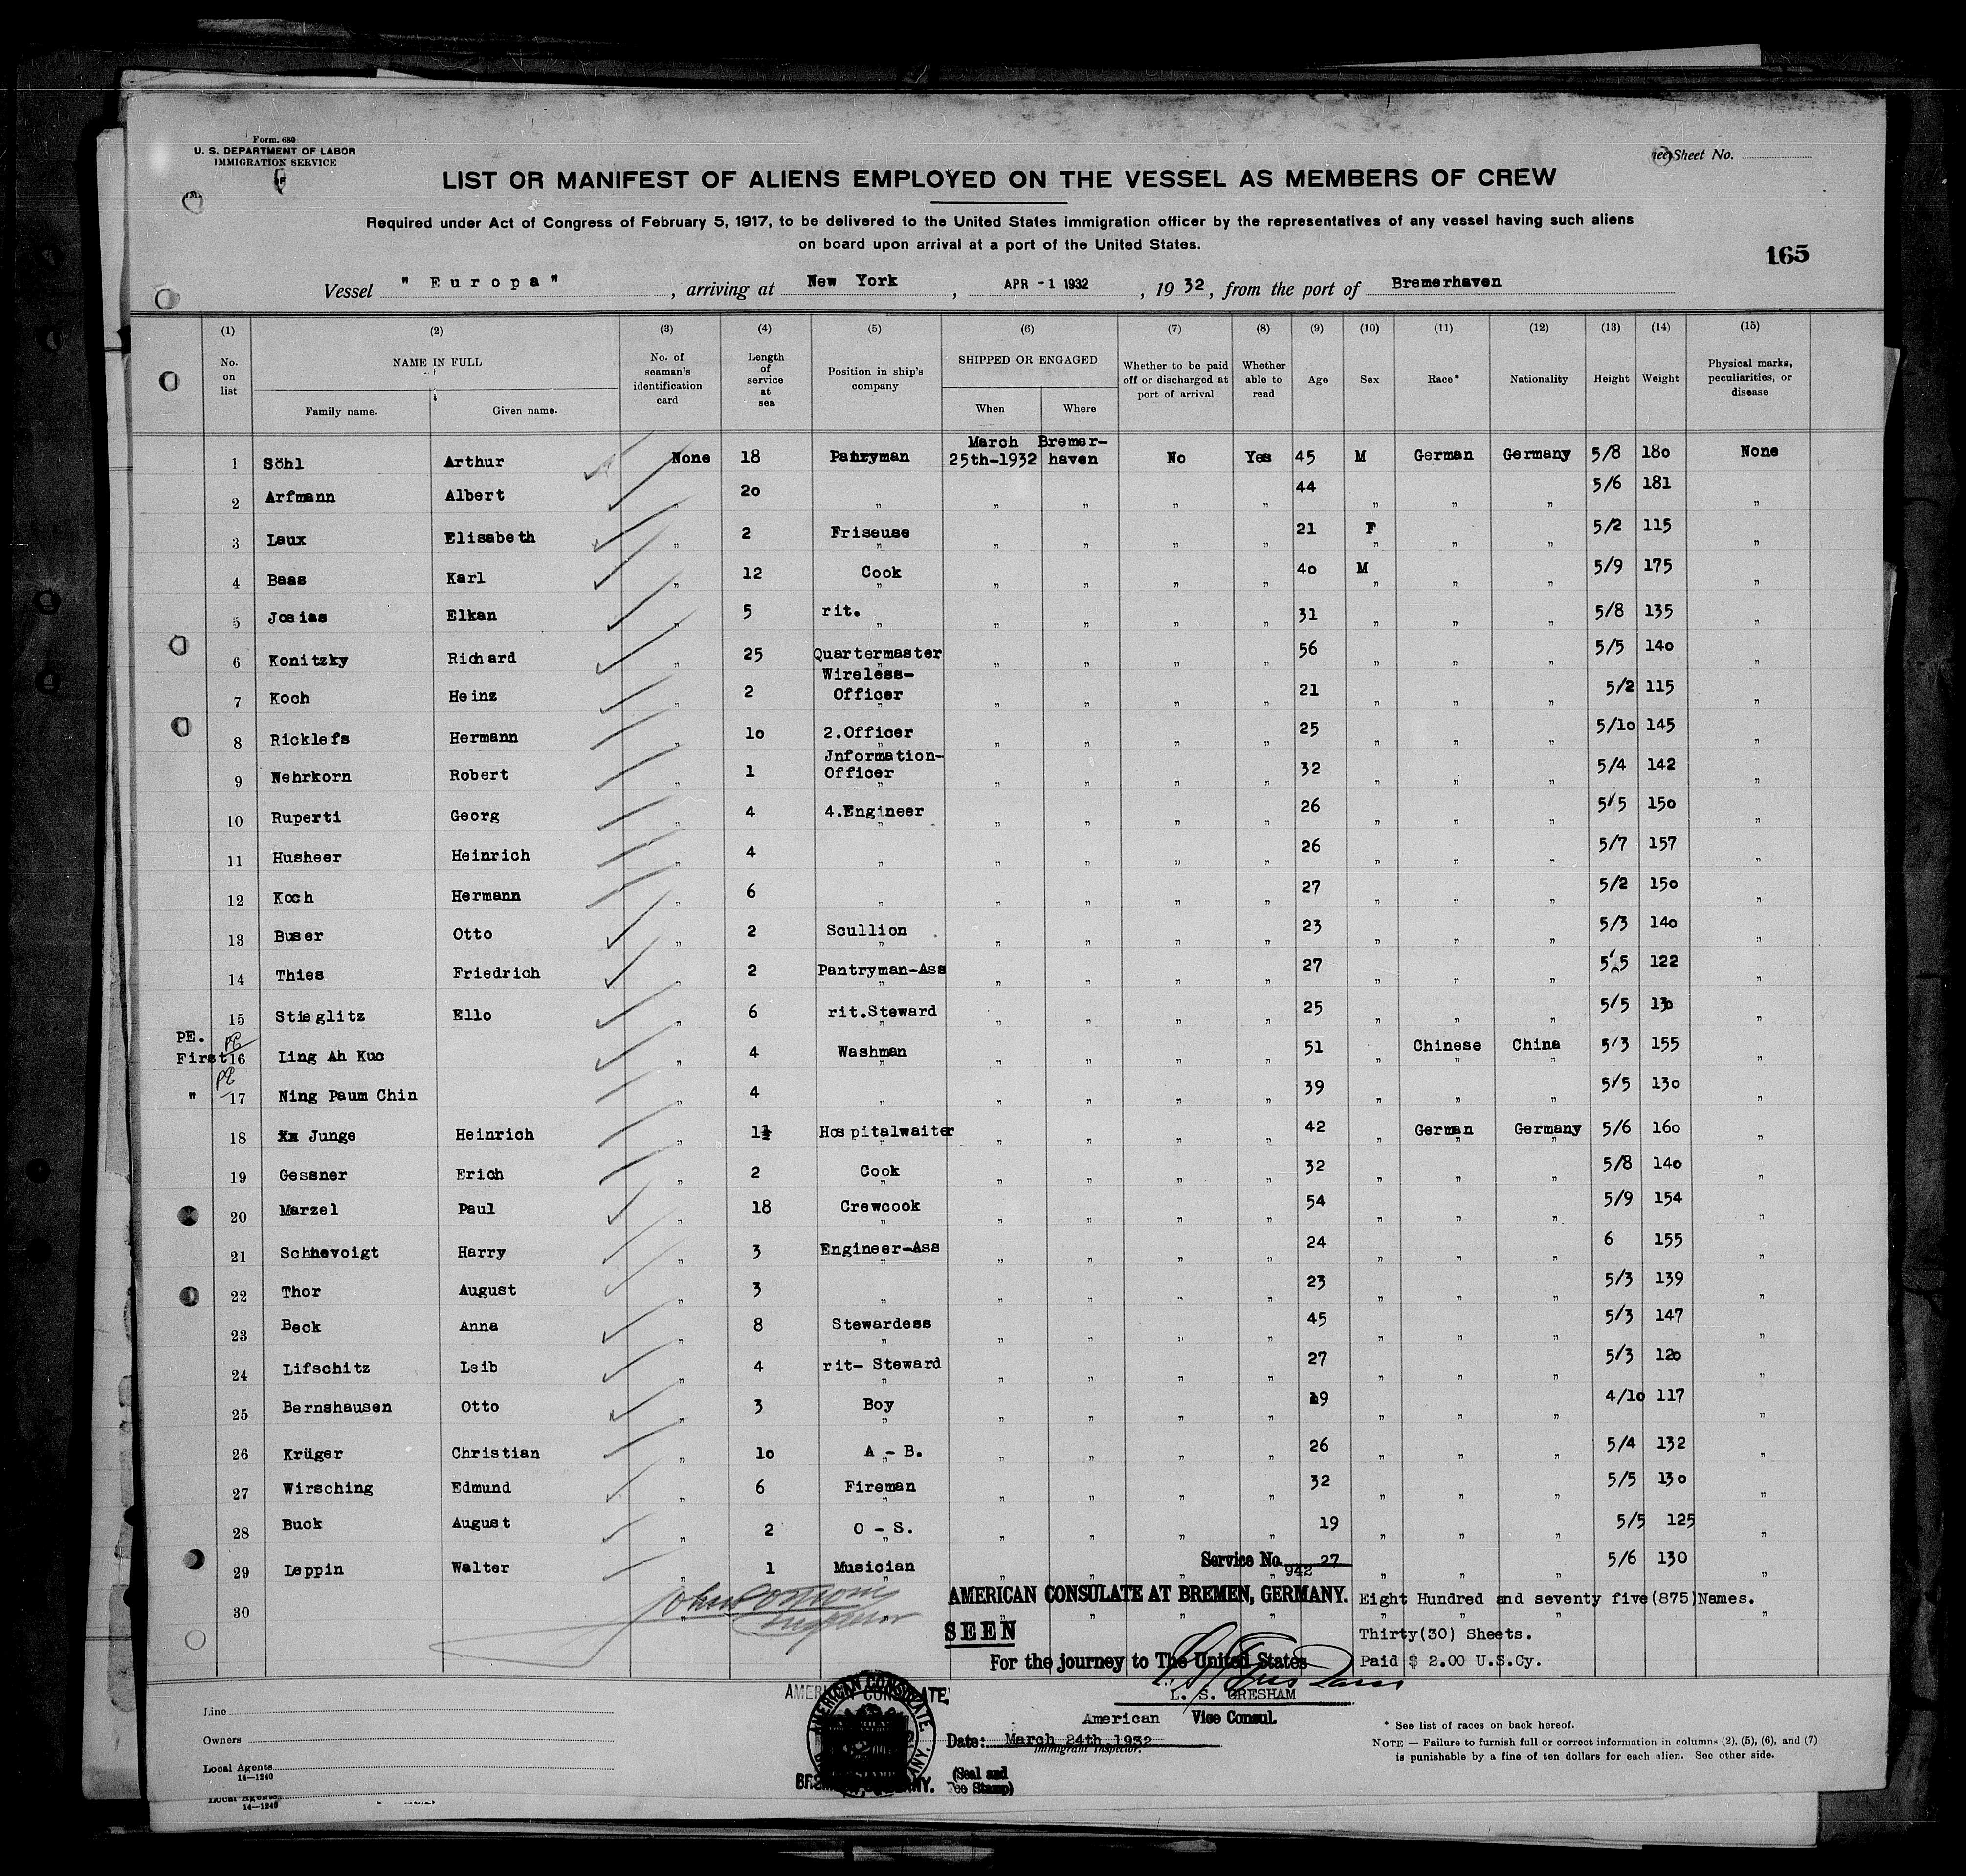 Form. 680
U. S. DEPARTMENT OF LABOR
IMMIGRATION SERVICE
Sheet No.
LIST OR MANIFEST OF ALIENS EMPLOYED ON THE VESSEL AS MEMBERS OF CREW
Required under Act of Congress of February 5, 1917, to be delivered to the United States immigration officer by the representatives of any vessel having such aliens
on board upon arrival at a port of the United States.
165
Vessel " Europa " , arriving at New York , APR -1 1932 , 1932, from the port of Bremerhaven
(1) (2) (3) (4) (5) (6) (7) (8) (9) (10) (11) (12) (13) (14) (15)
No. on list NAME IN FULL Family name. Given name. No. of seaman's identification card Length of service at sea Position in ship's company SHIPPED OR ENGAGED When Where Whether to be paid off or discharged at port of arrival Whether able to read Age Sex Race* Nationality Height Weight Physical marks, peculiarities, or disease
1 Söhl Arthur None 18 Pantryman March 25th-1932 Bremer-haven No Yes 45 M German Germany 5/8 180 None
2 Arfmann Albert 20 " " " " " 44 " " " 5/6 181 "
3 Laux Elisabeth " 2 Friseuse " " " " 21 F " " 5/2 115 "
4 Baas Karl " 12 Cook " " " " 40 M " " 5/9 175 "
5 Josias Elkan " 5 rit. " " " " " 31 " " " 5/8 135 "
6 Konitzky Richard " 25 Quartermaster " " " " 56 " " " 5/5 140 "
7 Koch Heinz " 2 Wireless-Officer " " " " 21 " " " 5/2 115 "
8 Ricklefs Hermann " 10 2.Officer " " " " 25 " " " 5/10 145 "
9 Nehrkorn Robert " 1 Jnformation-Officer " " " " 32 " " " 5/4 142 "
10 Ruperti Georg " 4 4.Engineer " " " " 26 " " " 5/5 150 "
11 Husheer Heinrich " 4 " " " " " 26 " " " 5/7 157 "
12 Koch Hermann " 6 " " " " " 27 " " " 5/2 150 "
13 Buser Otto " 2 Scullion " " " " 23 " " " 5/3 140 "
14 Thies Friedrich " 2 Pantryman-Ass " " " " 27 " " " 5/5 122 "
15 Stieglitz Ello " 6 rit.Steward " " " " 25 " " " 5/5 130 "
PE. PE
First 16 Ling Ah Kuo " 4 Washman " " " " 51 " Chinese China 5/3 155 "
PE
" 17 Ning Paum Chin " 4 " " " " " 39 " " " 5/5 130 "
18 Junge Heinrich " 1½ Hospitalwaiter " " " " 42 " German Germany 5/6 160 "
19 Gessner Erich " 2 Cook " " " " 32 " " " 5/8 140 "
20 Marzel Paul " 18 Crewcook " " " " 54 " " " 5/9 154 "
21 Schnevoigt Harry " 3 Engineer-Ass " " " " 24 " " " 6 155 "
22 Thor August " 3 " " " " " 23 " " " 5/3 139 "
23 Beck Anna " 8 Stewardess " " " " 45 " " " 5/3 147 "
24 Lifschitz Leib " 4 rit- Steward " " " " 27 " " " 5/3 120 "
25 Bernshausen Otto " 3 Boy " " " " 19 " " " 4/10 117 "
26 Krüger Christian " 10 A - B. " " " " 26 " " " 5/4 132 "
27 Wirsching Edmund " 6 Fireman " " " " 32 " " " 5/5 130 "
28 Buck August " 2 O - S. " " " " 19 " " " 5/5 125 "
29 Leppin Walter " 1 Musician 5/6 130 "
30
Service No. 27
942
AMERICAN CONSULATE AT BREMEN, GERMANY.
Eight Hundred and seventy five(875)Names.
SEEN
Thirty(30) Sheets.
For the journey to The United States
Paid $ 2.00 U.S.Cy.
L. S. GRESHAM
American Vice Consul.
Date: March 24th 1932
Immigrant Inspector.
(Seal and
Fee Stamp)
AMERICAN CONSULATE,
BREMEN, GERMANY.
Line
Owners
Local Agents
14—1240
* See list of races on back hereof.
NOTE — Failure to furnish full or correct information in columns (2), (5), (6), and (7)
is punishable by a fine of ten dollars for each alien. See other side.
Local Agents
14—1240